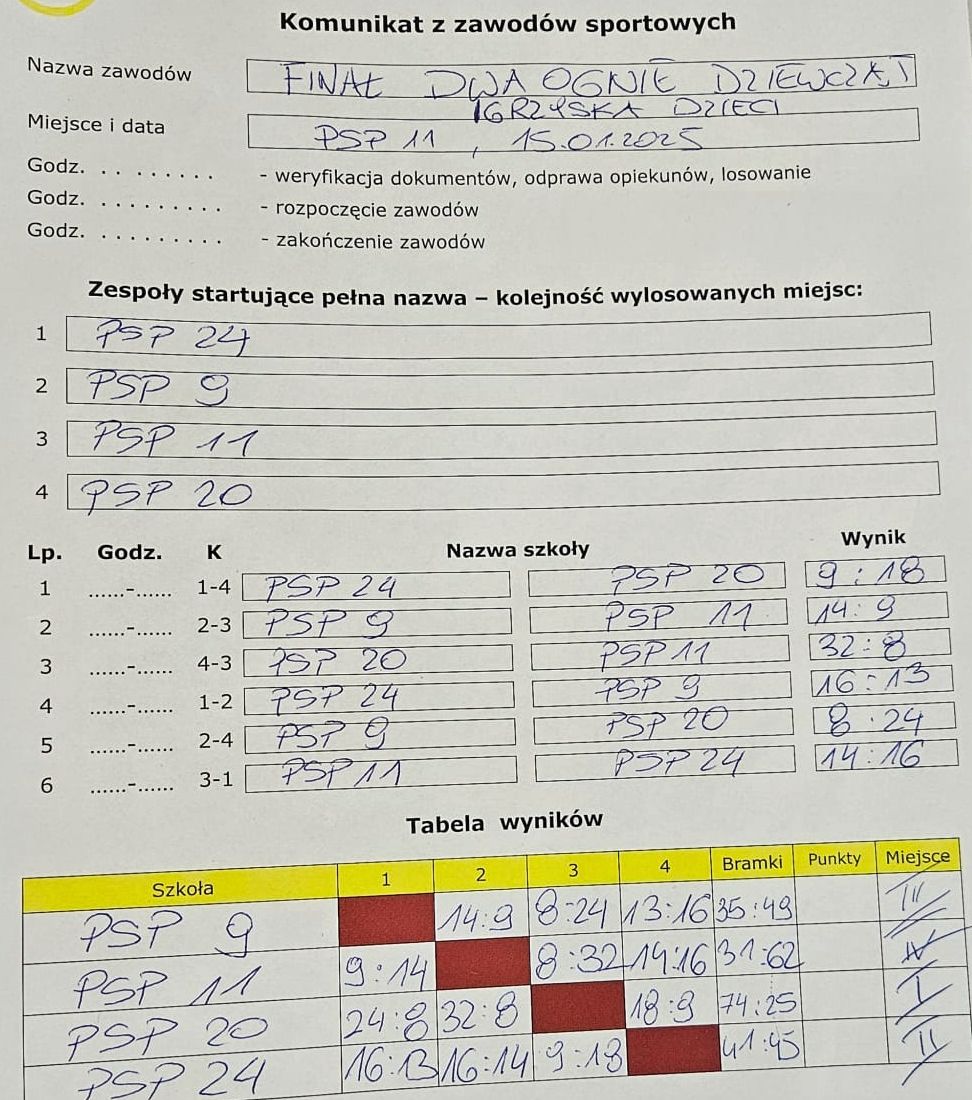 Komunikat z zawodów sportowych
Nazwa zawodów FINAŁ DWA OGNIE DZIEWCZĄT
IGRZYSKA DZIECI
Miejsce i data PSP 11 , 15.01.2025
Godz. . . . . . . . . . - weryfikacja dokumentów, odprawa opiekunów, losowanie
Godz. . . . . . . . . . - rozpoczęcie zawodów
Godz. . . . . . . . . . - zakończenie zawodów
Zespoły startujące pełna nazwa – kolejność wylosowanych miejsc:
1 PSP 24
2 PSP 9
3 PSP 11
4 PSP 20
Lp. Godz. K Nazwa szkoły Wynik
1 ......-...... 1-4 PSP 24 PSP 20 9 : 18
2 ......-...... 2-3 PSP 9 PSP 11 14 : 9
3 ......-...... 4-3 PSP 20 PSP 11 32 : 8
4 ......-...... 1-2 PSP 24 PSP 9 16 : 13
5 ......-...... 2-4 PSP 9 PSP 20 8 . 24
6 ......-...... 3-1 PSP 11 PSP 24 14 : 16
Tabela wyników
Szkoła 1 2 3 4 Bramki Punkty Miejsce
PSP 9 14:9 8:24 13:16 35:49 III
PSP 11 9:14 8:32 14:16 31:62 IV
PSP 20 24:8 32:8 18:9 74:25 I
PSP 24 16:13 16:14 9:18 41:45 II